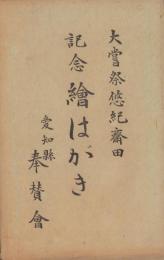 大嘗祭悠紀齋田
記念繪はがき
愛知縣奉賛會